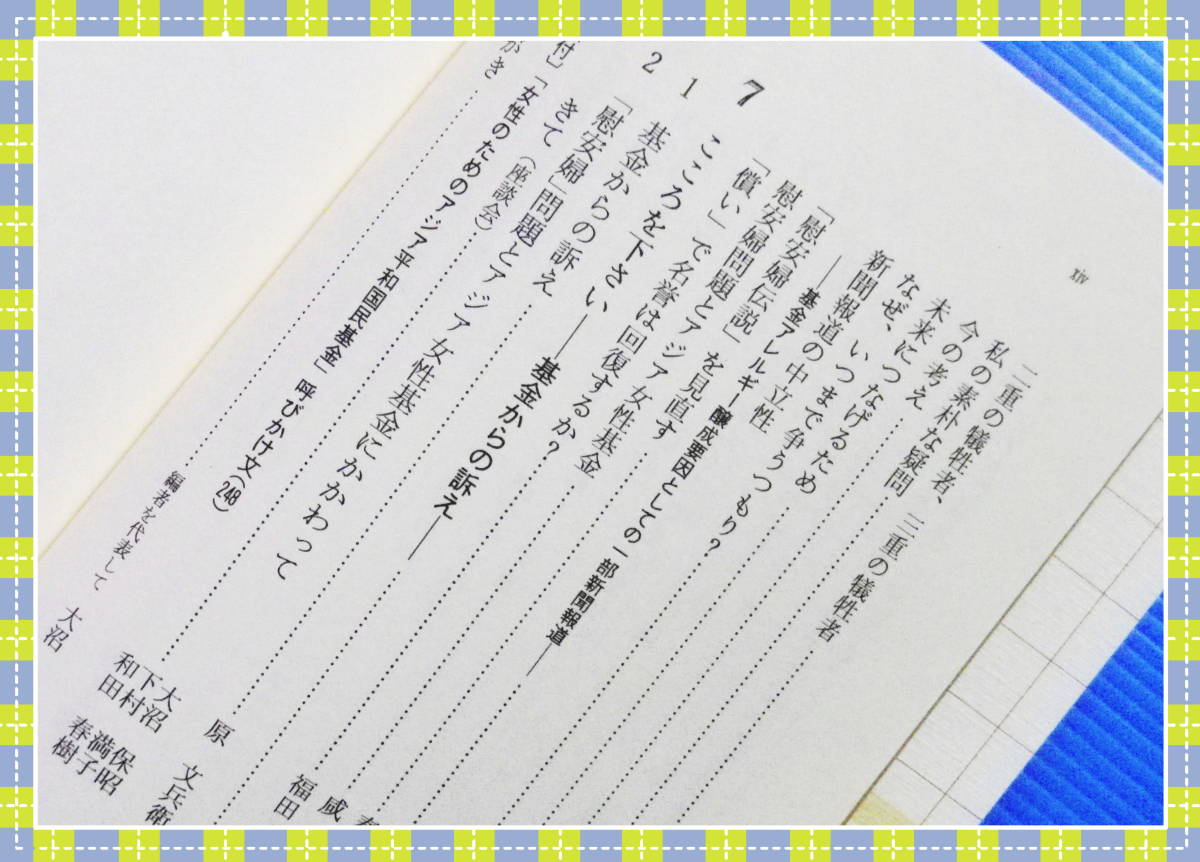 xiv
二重の犠牲者、三重の犠牲者
私の素朴な疑問
今の考え
未来につなげるため
なぜ、いつまで争うつもり？
新聞報道の中立性
――基金アレルギー醸成要因としての一部新聞報道――
「慰安婦伝説」を見直す
慰安婦問題とアジア女性基金 咸
「償い」で名誉は回復するか？ 福田
7 こころを下さい――基金からの訴え――
1 基金からの訴え 原 文兵衛
2 「慰安婦」問題とアジア女性基金にかかわって
きて（座談会） 大沼 保昭
下村 満子
和田 春樹
付］「女性のためのアジア平和国民基金」呼びかけ文(248)
がき 編者を代表して 大沼